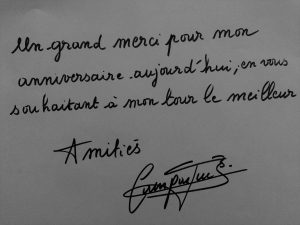 Un grand merci pour mon
anniversaire aujourd'hui, en vous
souhaitant à mon tour le meilleur
Amitiés